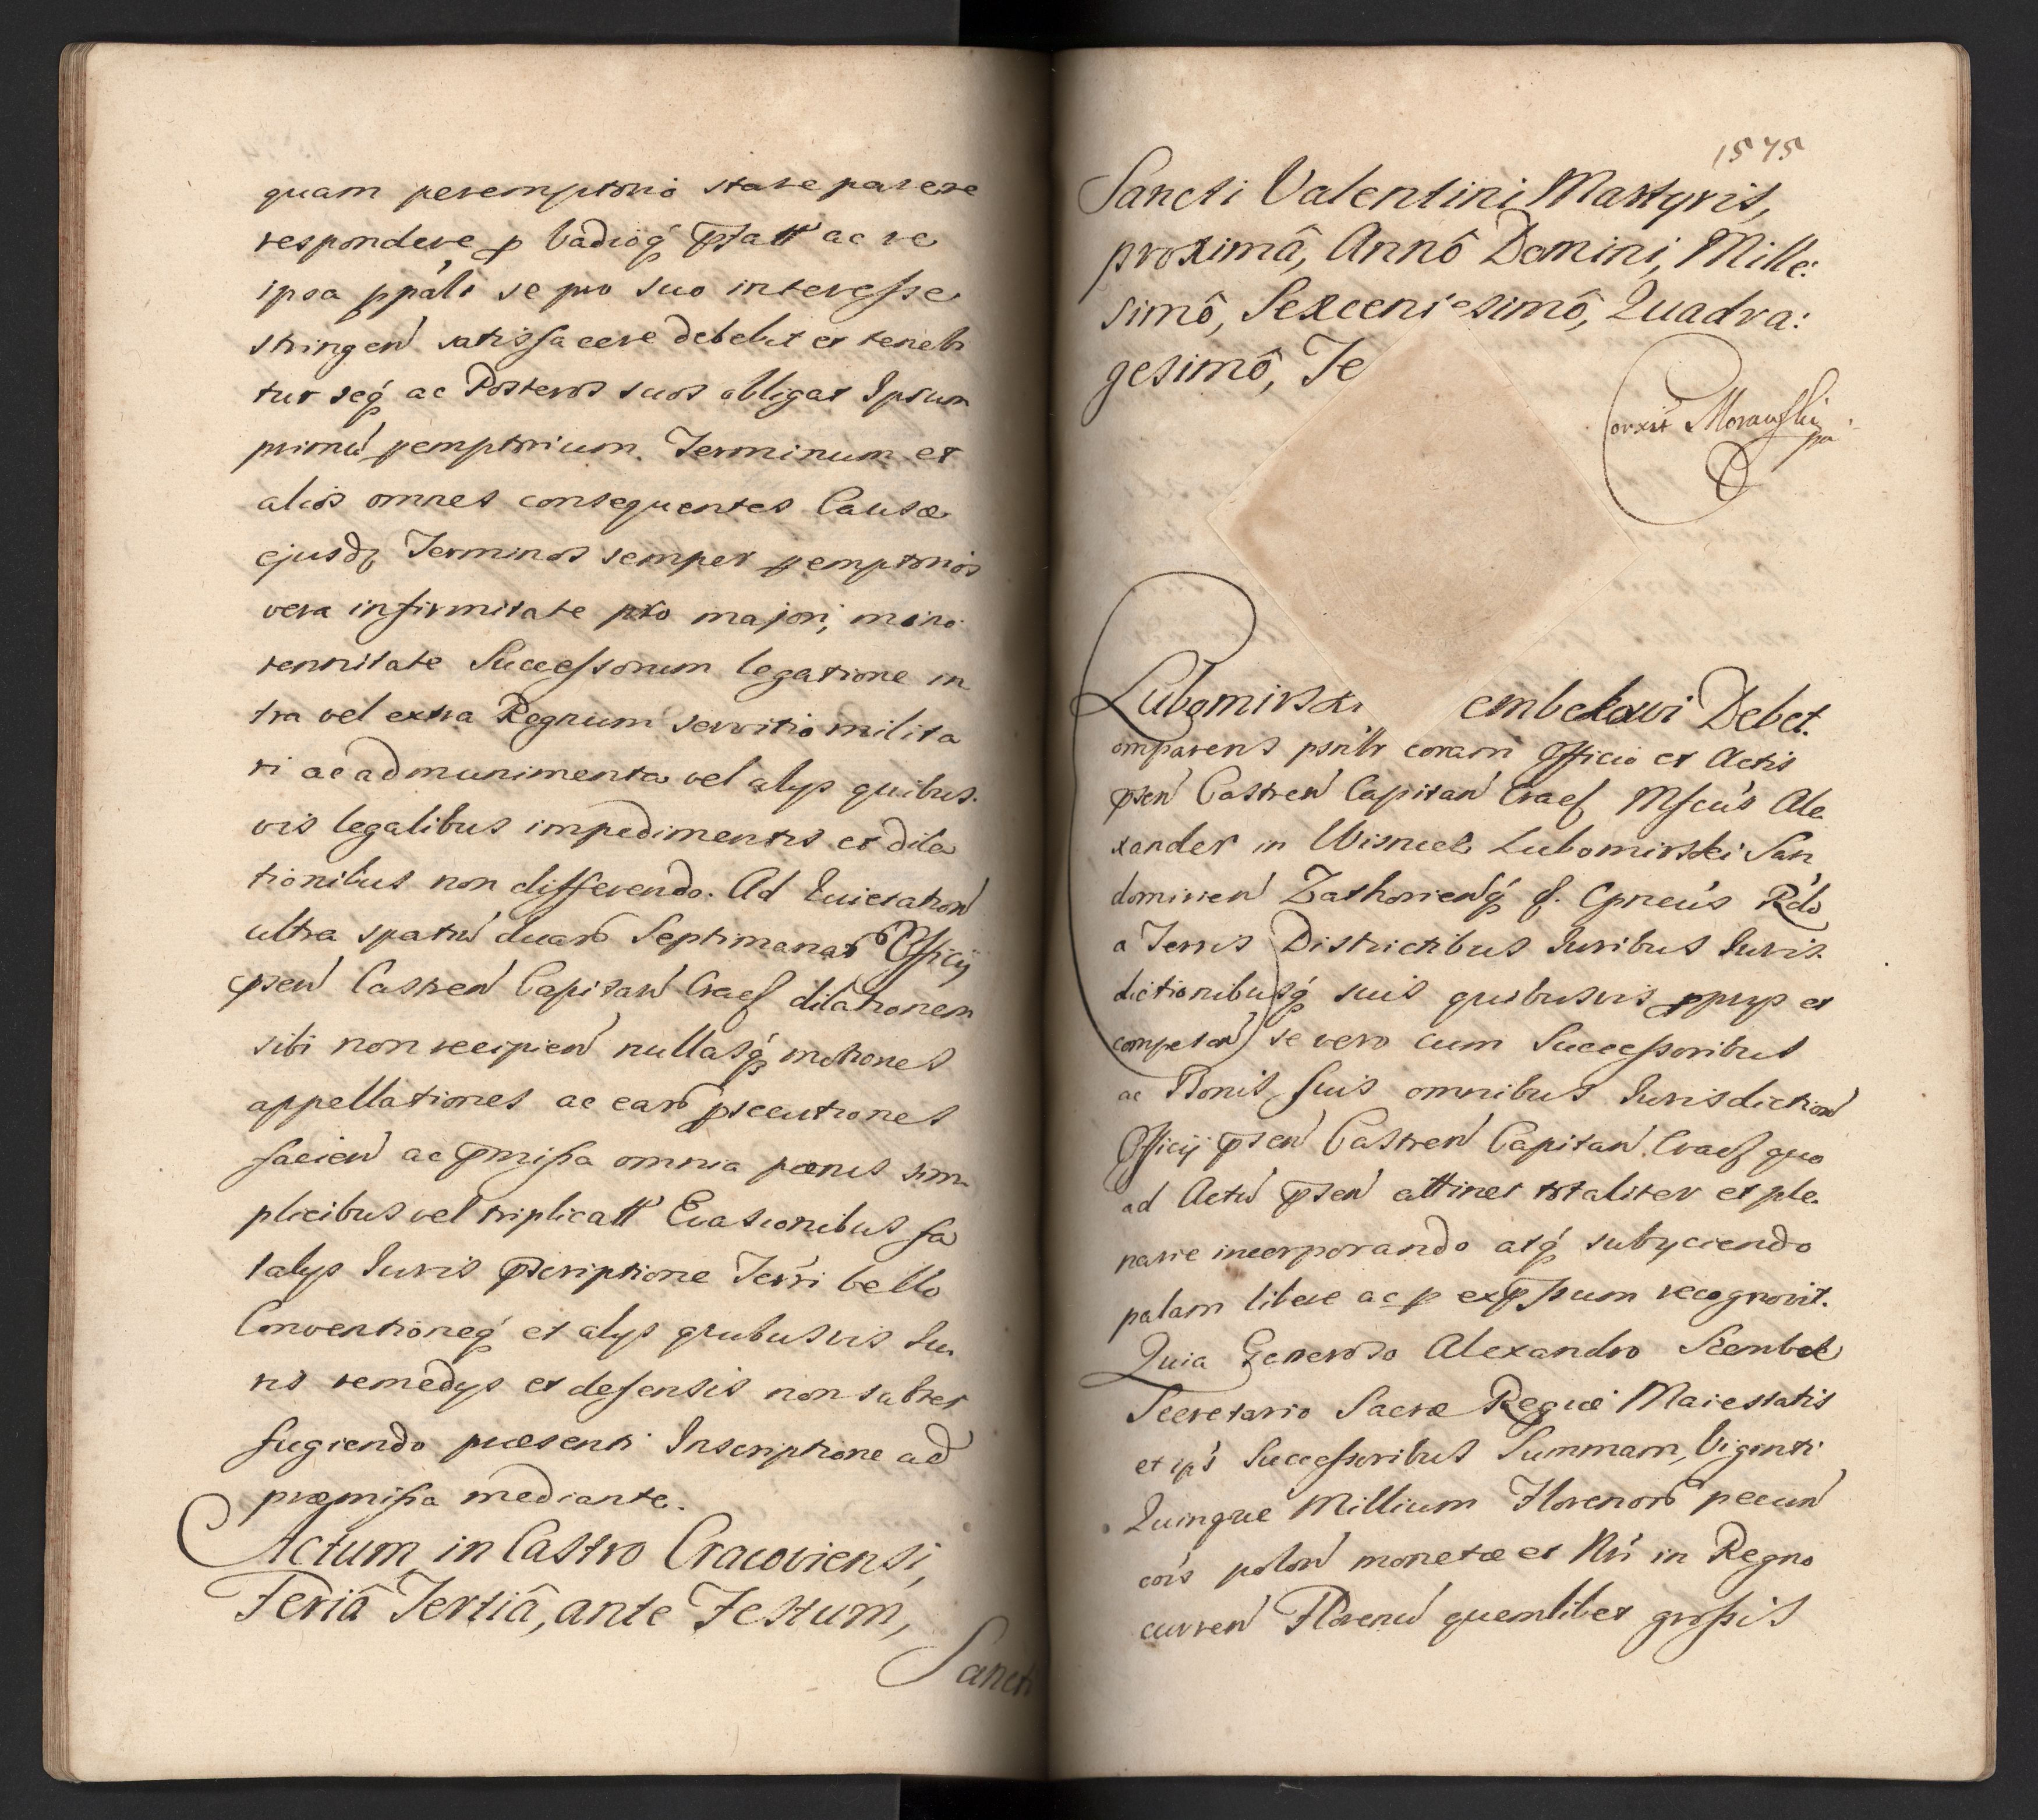 quam peremptorio stare parere
respondere p Vadioq́ pfatt ac re
ipsa ppáli se pro suo interesse
stringen satisfacere debebit et teneb
tur seq́ ac Posteros suos obligat Ipsum
primū pemptorium Terminum et
alios omnes consequentes Causæ
ejusdӡ Terminos semper pemptorios
vera infirmitate pro majori, mino
rennitate Successorum legatione in
tra vel extra Regnum servitio milita
ri ac ad munimenta vel alys quibus
vis legalibus impedimentis et dila
tionibus non differendo. Ad Evictation
ultra spatiū duar Septimanar Officÿ
psen Castren Capitan Cracͦ dilationem
sibi non recipien nullasq́ motiones
appellationes ac ear psecutiones
facien ac pmissa omnia pœnis sim
plicibus vel triplicatt Evasionibus fa
talys Iuris pscriptione Terŕi bello
Conventioneq́ et alys quibusvis Iu
ris remedys et defensis non subter
fugiendo præsenti Inscriptione ad
præmissa mediante.
Actum in Castro Cracoviensi,
Feriâ Tertiâ, ante Festum,
Sancti
1575
Sancti Valentini Martyris,
proximâ, Annô Domini, Mille:
simô, Sexcentesimô, Quadra:
gesimô, Te
Corexit Morawski
pa
Lubomirski embekowi Debet.
omparens psnltr coram Officio et Actis
psen Castren Capitan Cracͦ Mfcús Ale
xander in Wisnicz Lubomirski San
domirien Zathorienq́ Gͦ. Cpneús Rdo
a Terris Districtibus Iuribus Iuris
dictionibusq́ suis quibusvis pprys et
competen se vero cum Successoribus
ac Bonis suis omnibus Iurisdiction
Officÿ psen Castren Capitan Cracͦ quo
ad Actū psen attinet totaliter et ple
narie incorporando atq́ subyciendo
palam libere ac p expssum recognovit.
Quia Generoso Alexandro Szembek
Secretario Sacræ Regiæ Maiestatis
et ips Successoribus Summam, Viginti
Quinque Millium Florenor pecun
cois polon monetæ et Nri in Regno
curren Florenū quemlibet grossis